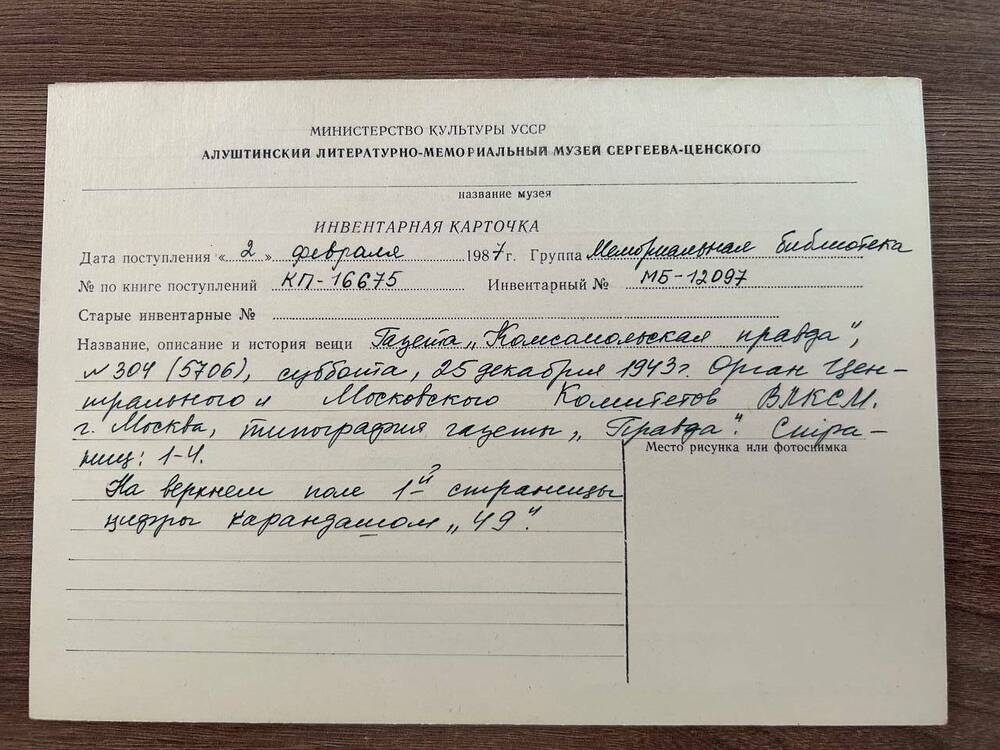 МИНИСТЕРСТВО КУЛЬТУРЫ УССР
АЛУШТИНСКИЙ ЛИТЕРАТУРНО-МЕМОРИАЛЬНЫЙ МУЗЕЙ СЕРГЕЕВА-ЦЕНСКОГО
название музея
ИНВЕНТАРНАЯ КАРТОЧКА
Дата поступления «2» февраля 1987 г. Группа Мемориальная библиотека
№ по книге поступлений КП-16675 Инвентарный № МБ-12097
Старые инвентарные №
Название, описание и история вещи Газета „Комсомольская правда",
№ 304 (5706), суббота, 25 декабря 1943 г. Орган Цен-
трального и Московского Комитетов ВЛКСМ.
г. Москва, типография газеты „Правда". Стра-
ниц: 1-4.
Место рисунка или фотоснимка
На верхнем поле 1-й страницы
цифры карандашом „49".